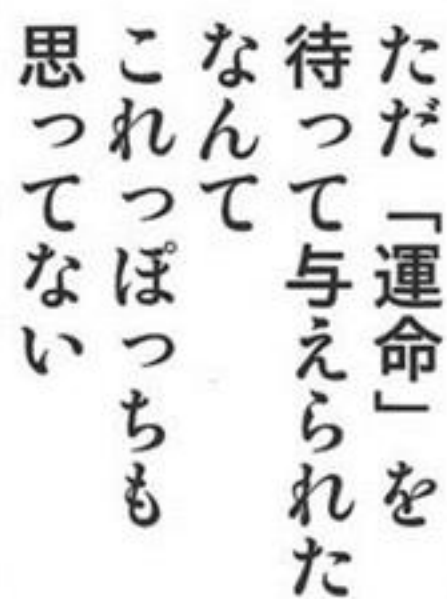 ただ「運命」を
待って与えられた
なんて
これっぽっちも
思ってない